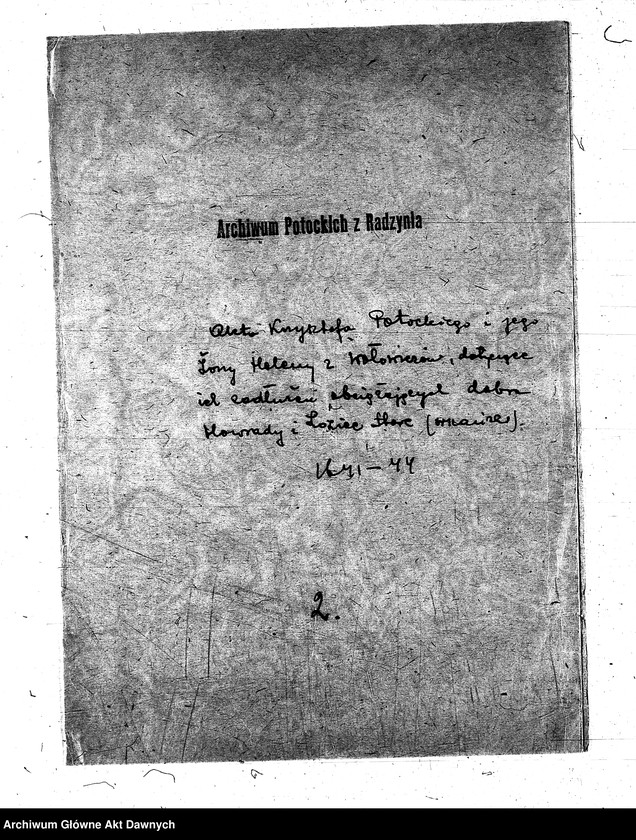 Archiwum Potockich z Radzynia
Akta Krzysztofa Potockiego i jego
żony Heleny z Wołowiczów, dotyczące
ich zadłużeń obciążających dobra
i Łozice Stare
1641-44
2.
Archiwum Główne Akt Dawnych